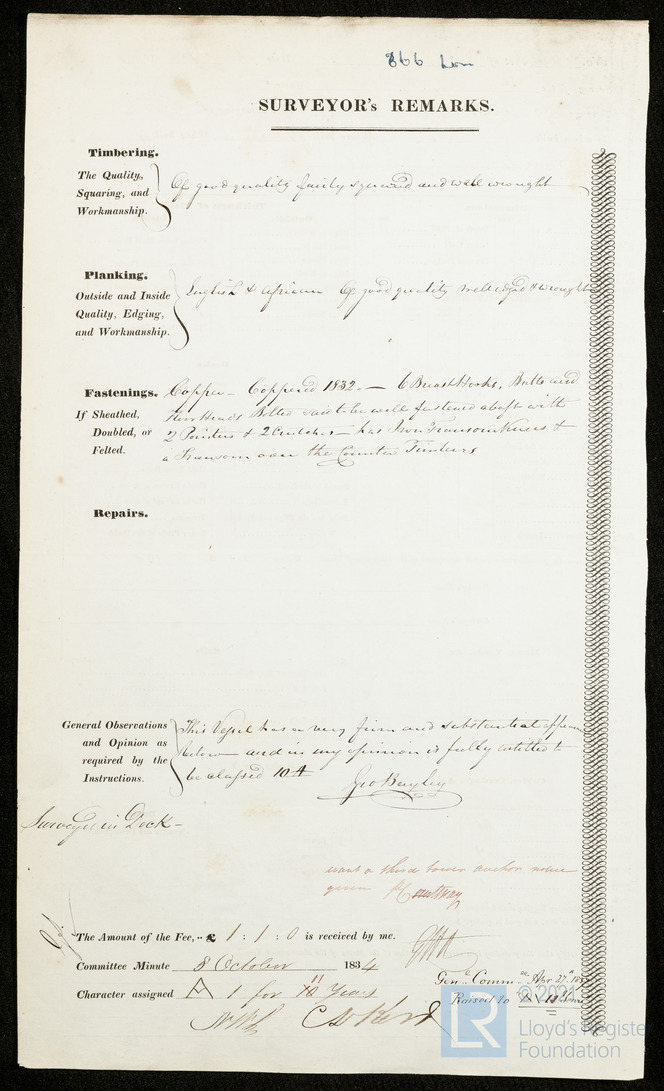 866 Lon
SURVEYOR's REMARKS.
Timbering.
The Quality, Squaring, and Workmanship.
Of good quality fairly squared and well wrought
Planking.
Outside and Inside Quality, Edging, and Workmanship.
English & African Of good quality well edged & wrought
Fastenings.
If Sheathed, Doubled, or Felted.
Copper - Coppered 1832 - 6 Breast Hooks, Butts and
Bolted said to be well fastened abaft with
2 Pointers & 2 Crutches - has Iron Transom Knees &
a Transom over the Counter Timbers
Repairs.
General Observations and Opinion as required by the Instructions.
This Vessel has a very firm and substantial
below and in my opinion is fully entitled to
be classed 10 A
Geo Bayley
Surveyed in Dock -
want a third bower anchor
given
The Amount of the Fee, .. £ 1 : 1 : 0 is received by me.
Committee Minute 8 October 1834
Character assigned A 1 for 10 11 Years
Genl. Comm ee Apr 27th
Raised to
© 2021
LR
Lloyd's Register
Foundation